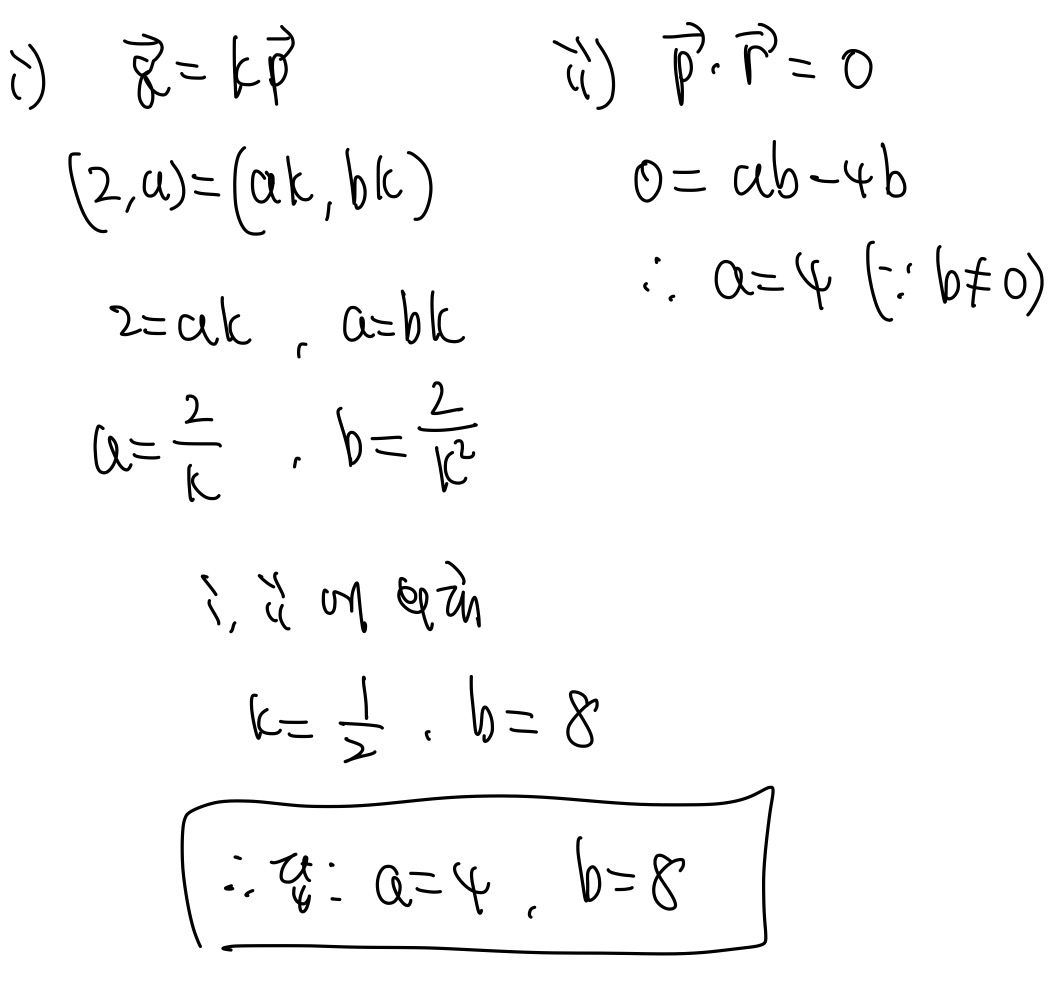 i) $\vec{q} = k\vec{p}$
(2, a) = (ak, bk)
2 = ak, a = bk
$a = \frac{2}{k}$, $b = \frac{2}{k^2}$
ii) $\vec{p} \cdot \vec{r} = 0$
0 = ab - 4b
∴ a = 4 (∵ b ≠ 0)
i, ii에 의해
$k = \frac{1}{2}$, b = 8
∴ 답: a = 4, b = 8